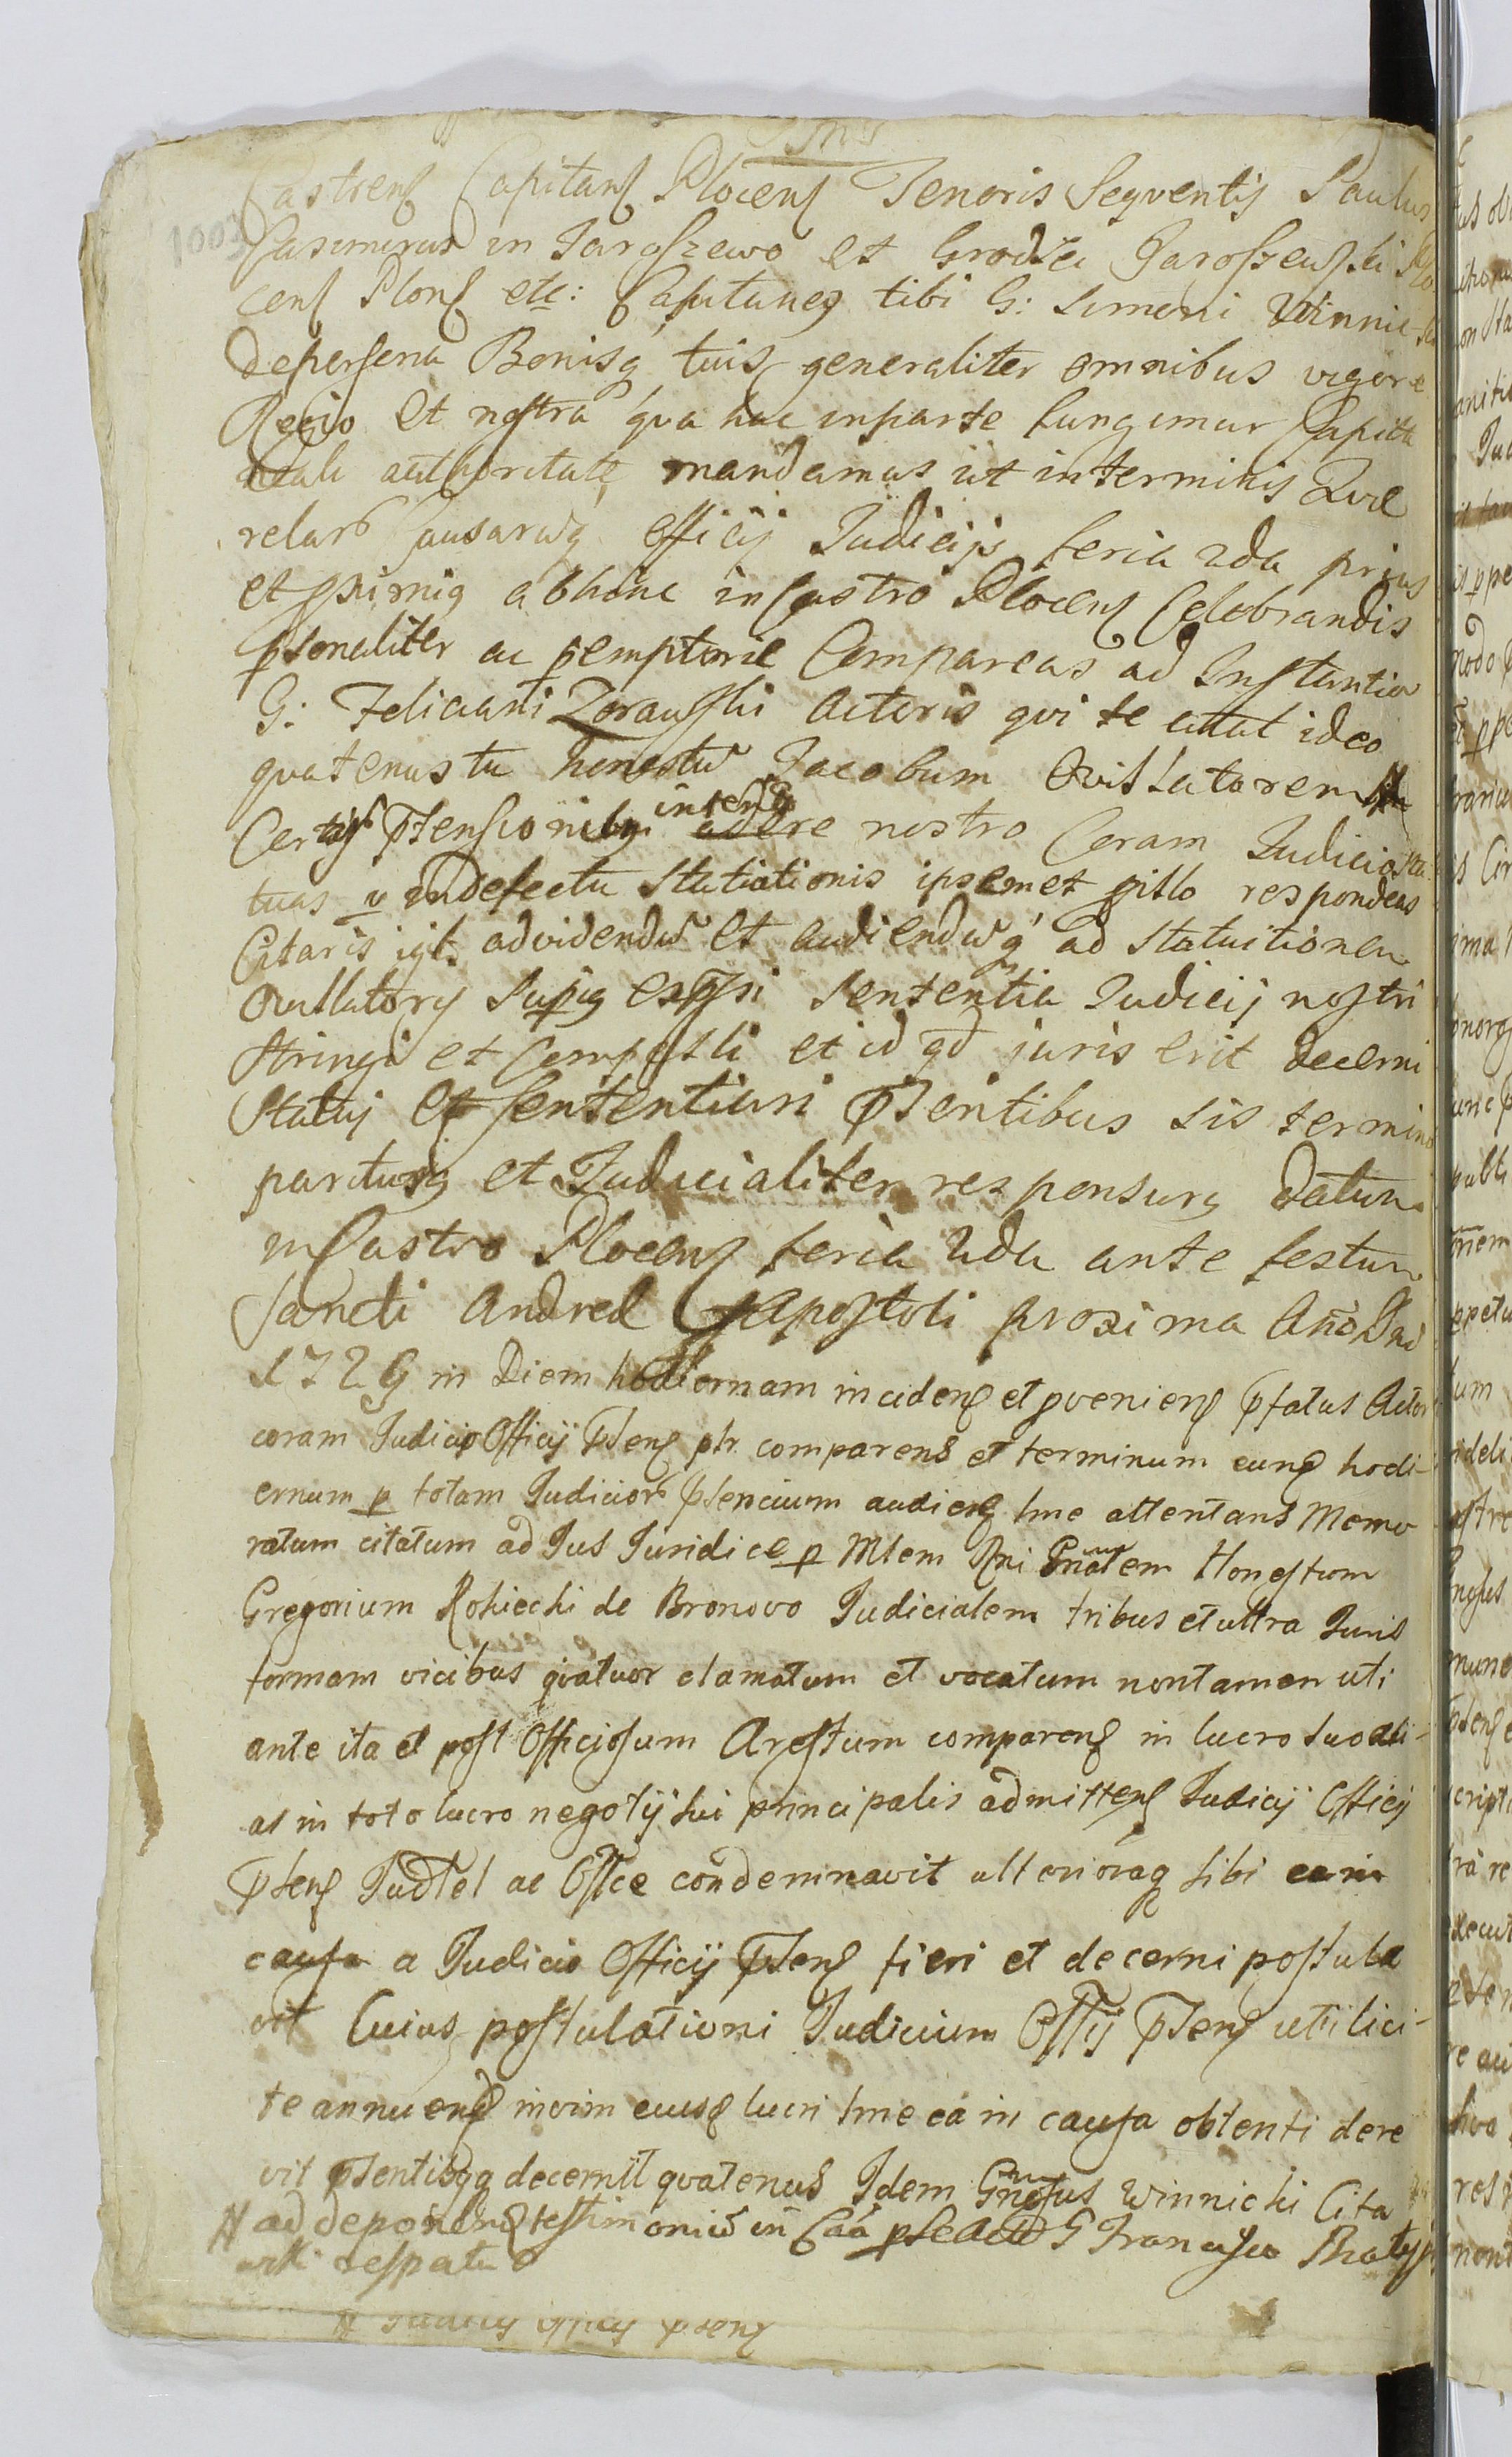 1003
Castrens Capitans Plocens Tenoris Seqventis Paulus
Casimirus in Jaroszewo et Grodza Jaroszewski Plo
cens Plons etc: Capitaneq tibi G: Simoni Winnic
depersona Bonisq tuis generaliter omnibus vigore
Regio et nostra qua hac inparte fungimur Capita
neali authoritate mandamus ut interminis Qve
relar Causarūq officij Judicijs feria 2da prius
et pximiq abhinc in Castro Plocens Celebrandis
psonaliter ac pemptorie Compareas ad Instantia
G: Feliciani Zorawski Actoris qvi te citat ideo
qvatenus tu honestū Jacobum Oviliatorem
Certis ptensionibq intentq adere nostro Coram Judicio sta
tuas v indefectu Statiationis ipsemet pillo respondeas
Citaris igt advidendū et audiendūq ad Statuitionem
Sententia Judicij nostri
Stringi et Compelli et id qd juris erit decerni
Statuj et sententiari ptentibus sis termino
pariturq et Judicialiter responsurq datum
in Castro Plocens feria 2da ante festum
Sancti Andreae Apostoli proxima Año Dni
1729 in Diem hodiernam incidens et pveniens pfatus Actor
coram Judicio Officij ptens plr comparens et terminum eund hodi-
ernum p totam Judicior ptencium audienq tme attentans Memo
ratum citatum ad Jus Juridice p Mtem Rni Gnalem Honestum
Gregorium Rokiecki de Bronovo Judicialem tribus et ultra Juris
formam vicibus qvatuor clamatum et vocatum nontamen uti
ante ita et post Officiosum Arestum comparens in lucro suo ali-
as in toto lucro negotij sui principalis admittens Judicij Officij
ptens Judtel ac Offce condemnavit ulterioraq sibi ea in
causa a Judicio Officij ptens fieri et decerni postula
vit Cuius postulationi Judicium Offij ptens uti lici-
te annuens invim eiusd lucri tme eá in causa obtenti decre
vit ptentibqq decernit qvatenus Idem Gnosus Winnicki Cita
# ad deponend testimoniū in Caá G Francisco
# Judicij Officij ptens